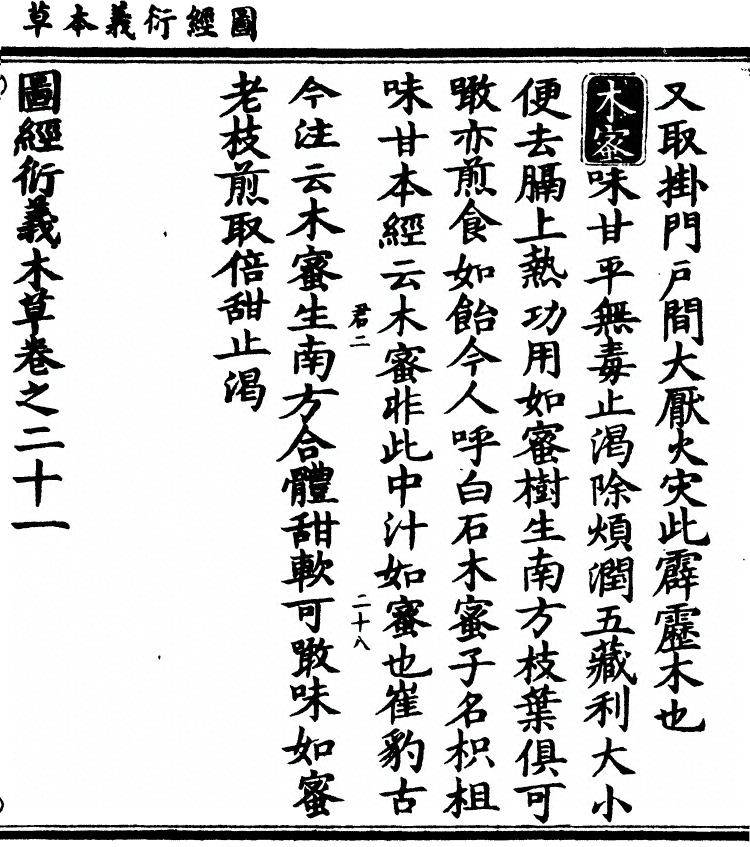 圖經衍義本草
又取掛門戶間大厭火灾此霹靂木也
木蜜味甘平無毒止渴除煩潤五藏利大小
便去膈上熱功用如蜜樹生南方枝葉俱可
噉亦煎食如飴今人呼白石木蜜子名枳柤
味甘本經云木蜜非此中汁如蜜也崔豹古
君二
二十八
今注云木蜜生南方合體甜軟可噉味如蜜
老枝煎取倍甜止渴
圖經衍義木草卷之二十一